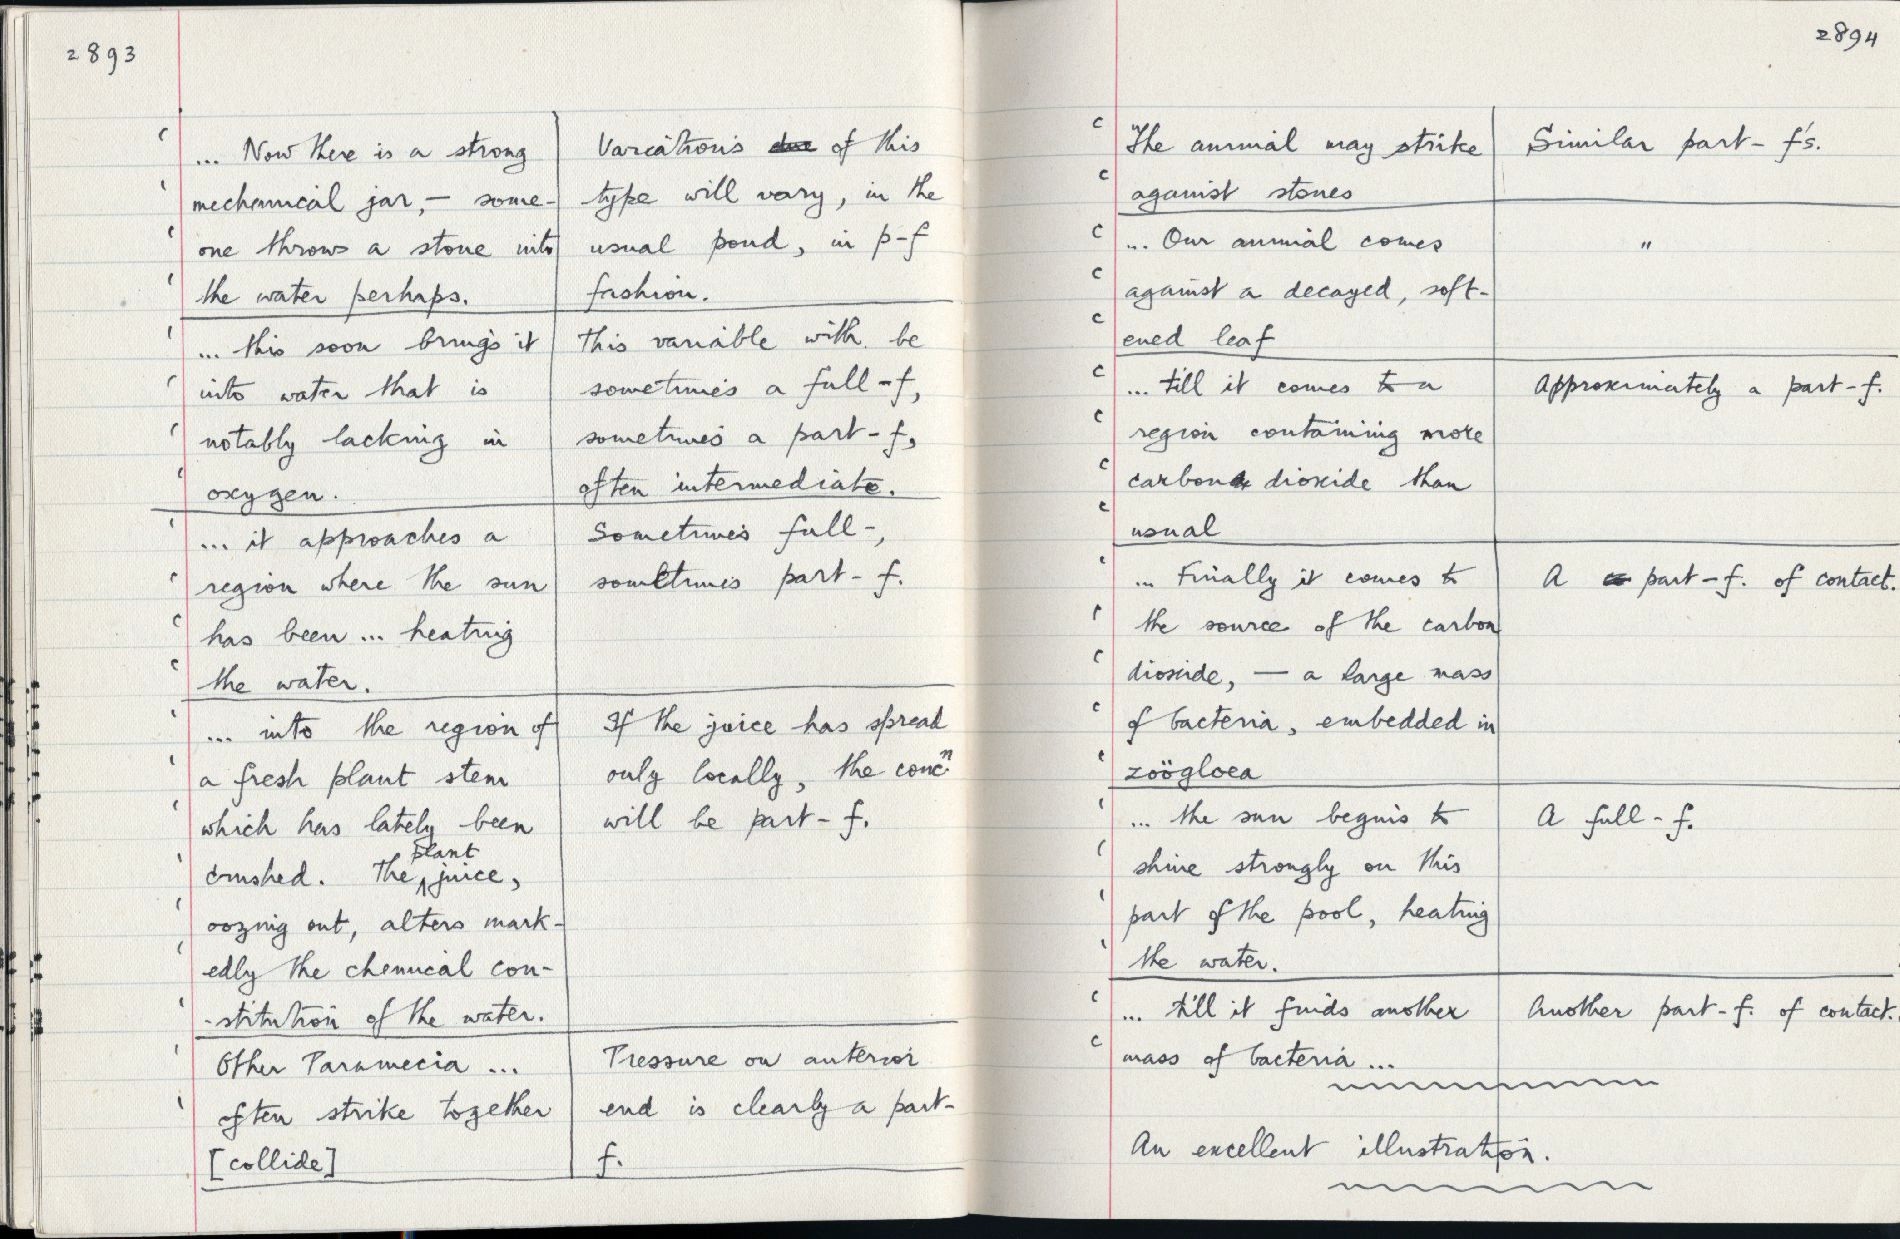 2893
... Now there is a strong
mechanical jar, — some-
one throws a stone into
the water perhaps.
Variations of this
type will vary, in the
usual pond, in p-f
fashion.
... this soon brings it
into water that is
notably lacking in
oxygen.
This variable with be
sometimes a full-f,
sometimes a part-f,
often intermediate.
... it approaches a
region where the sun
has been ... heating
the water.
Sometimes full-,
sometimes part-f.
... into the region of
a fresh plant stem
which has lately been
crushed. The plant juice,
oozing out, alters mark-
edly the chemical con-
-stitution of the water.
If the juice has spread
only locally, the concn
will be part-f.
Other Paramecia ...
often strike together
[collide]
Pressure on anterior
end is clearly a part-
f.
2894
"The animal may strike
against stones
Similar part-f's.
... Our animal comes
against a decayed, soft-
ened leaf
"
... till it comes to a
region containing more
carbon dioxide than
usual
Approximately a part-f.
... Finally it comes to
the source of the carbon
dioxide, — a large mass
of bacteria, embedded in
zoögloea
A part-f. of contact.
... the sun begins to
shine strongly on this
part of the pool, heating
the water.
A full-f.
... till it finds another
mass of bacteria ...
Another part-f. of contact.
An excellent illustration.